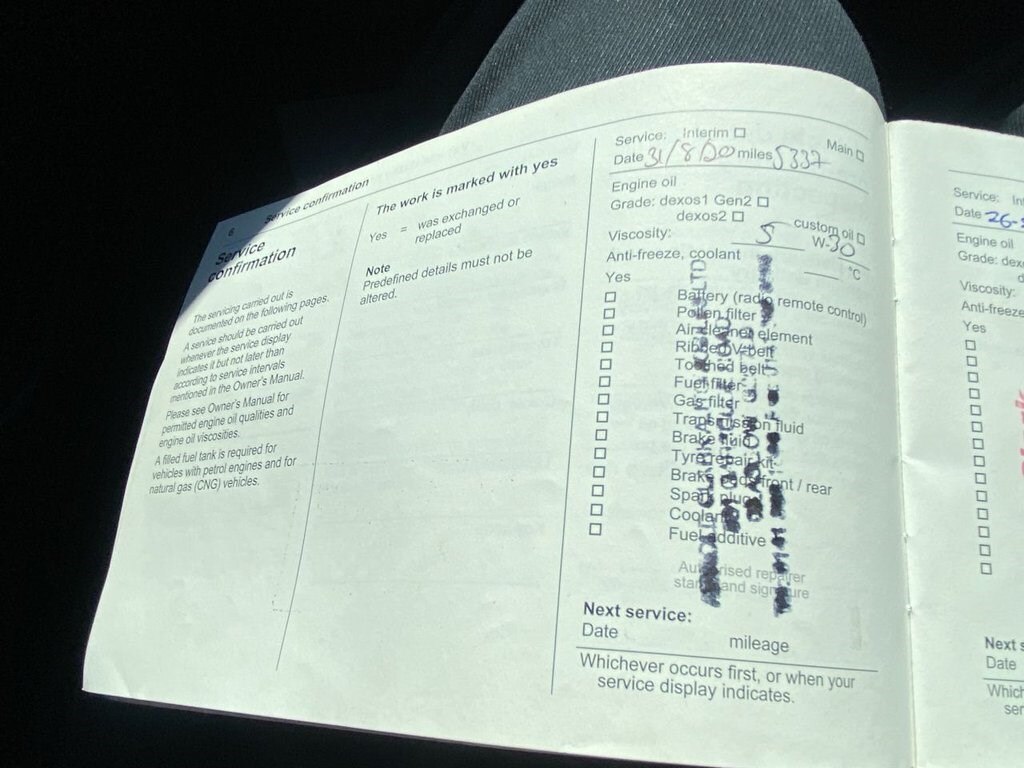 6 Service confirmation
Service
confirmation
The servicing carried out is
documented on the following pages.
A service should be carried out
whenever the service display
indicates it but not later than
according to service intervals
mentioned in the Owner's Manual.
Please see Owner's Manual for
permitted engine oil qualities and
engine oil viscosities.
A filled fuel tank is required for
vehicles with petrol engines and for
natural gas (CNG) vehicles.
The work is marked with yes
Yes = was exchanged or
replaced
Note
Predefined details must not be
altered.
Service: Interim Main
Date 31/8/20 miles 5337
Engine oil
Grade: dexos1 Gen2
dexos2 custom oil
Viscosity: 5 W-30
Anti-freeze, coolant °C
Yes
Battery (radio remote control)
Pollen filter
Air cleaner element
Ribbed V-belt
Toothed belt
Fuel filter
Gas filter
Transmission fluid
Brake fluid
Tyre repair kit
Brake pads front / rear
Spark plug
Coolant
Fuel additive
Authorised repairer
stamp and signature
LTD
Next service:
Date mileage
Whichever occurs first, or when your
service display indicates.
Service:
Date 26-
Engine oil
Grade:
Viscosity:
Anti-freeze
Yes
Next
Date